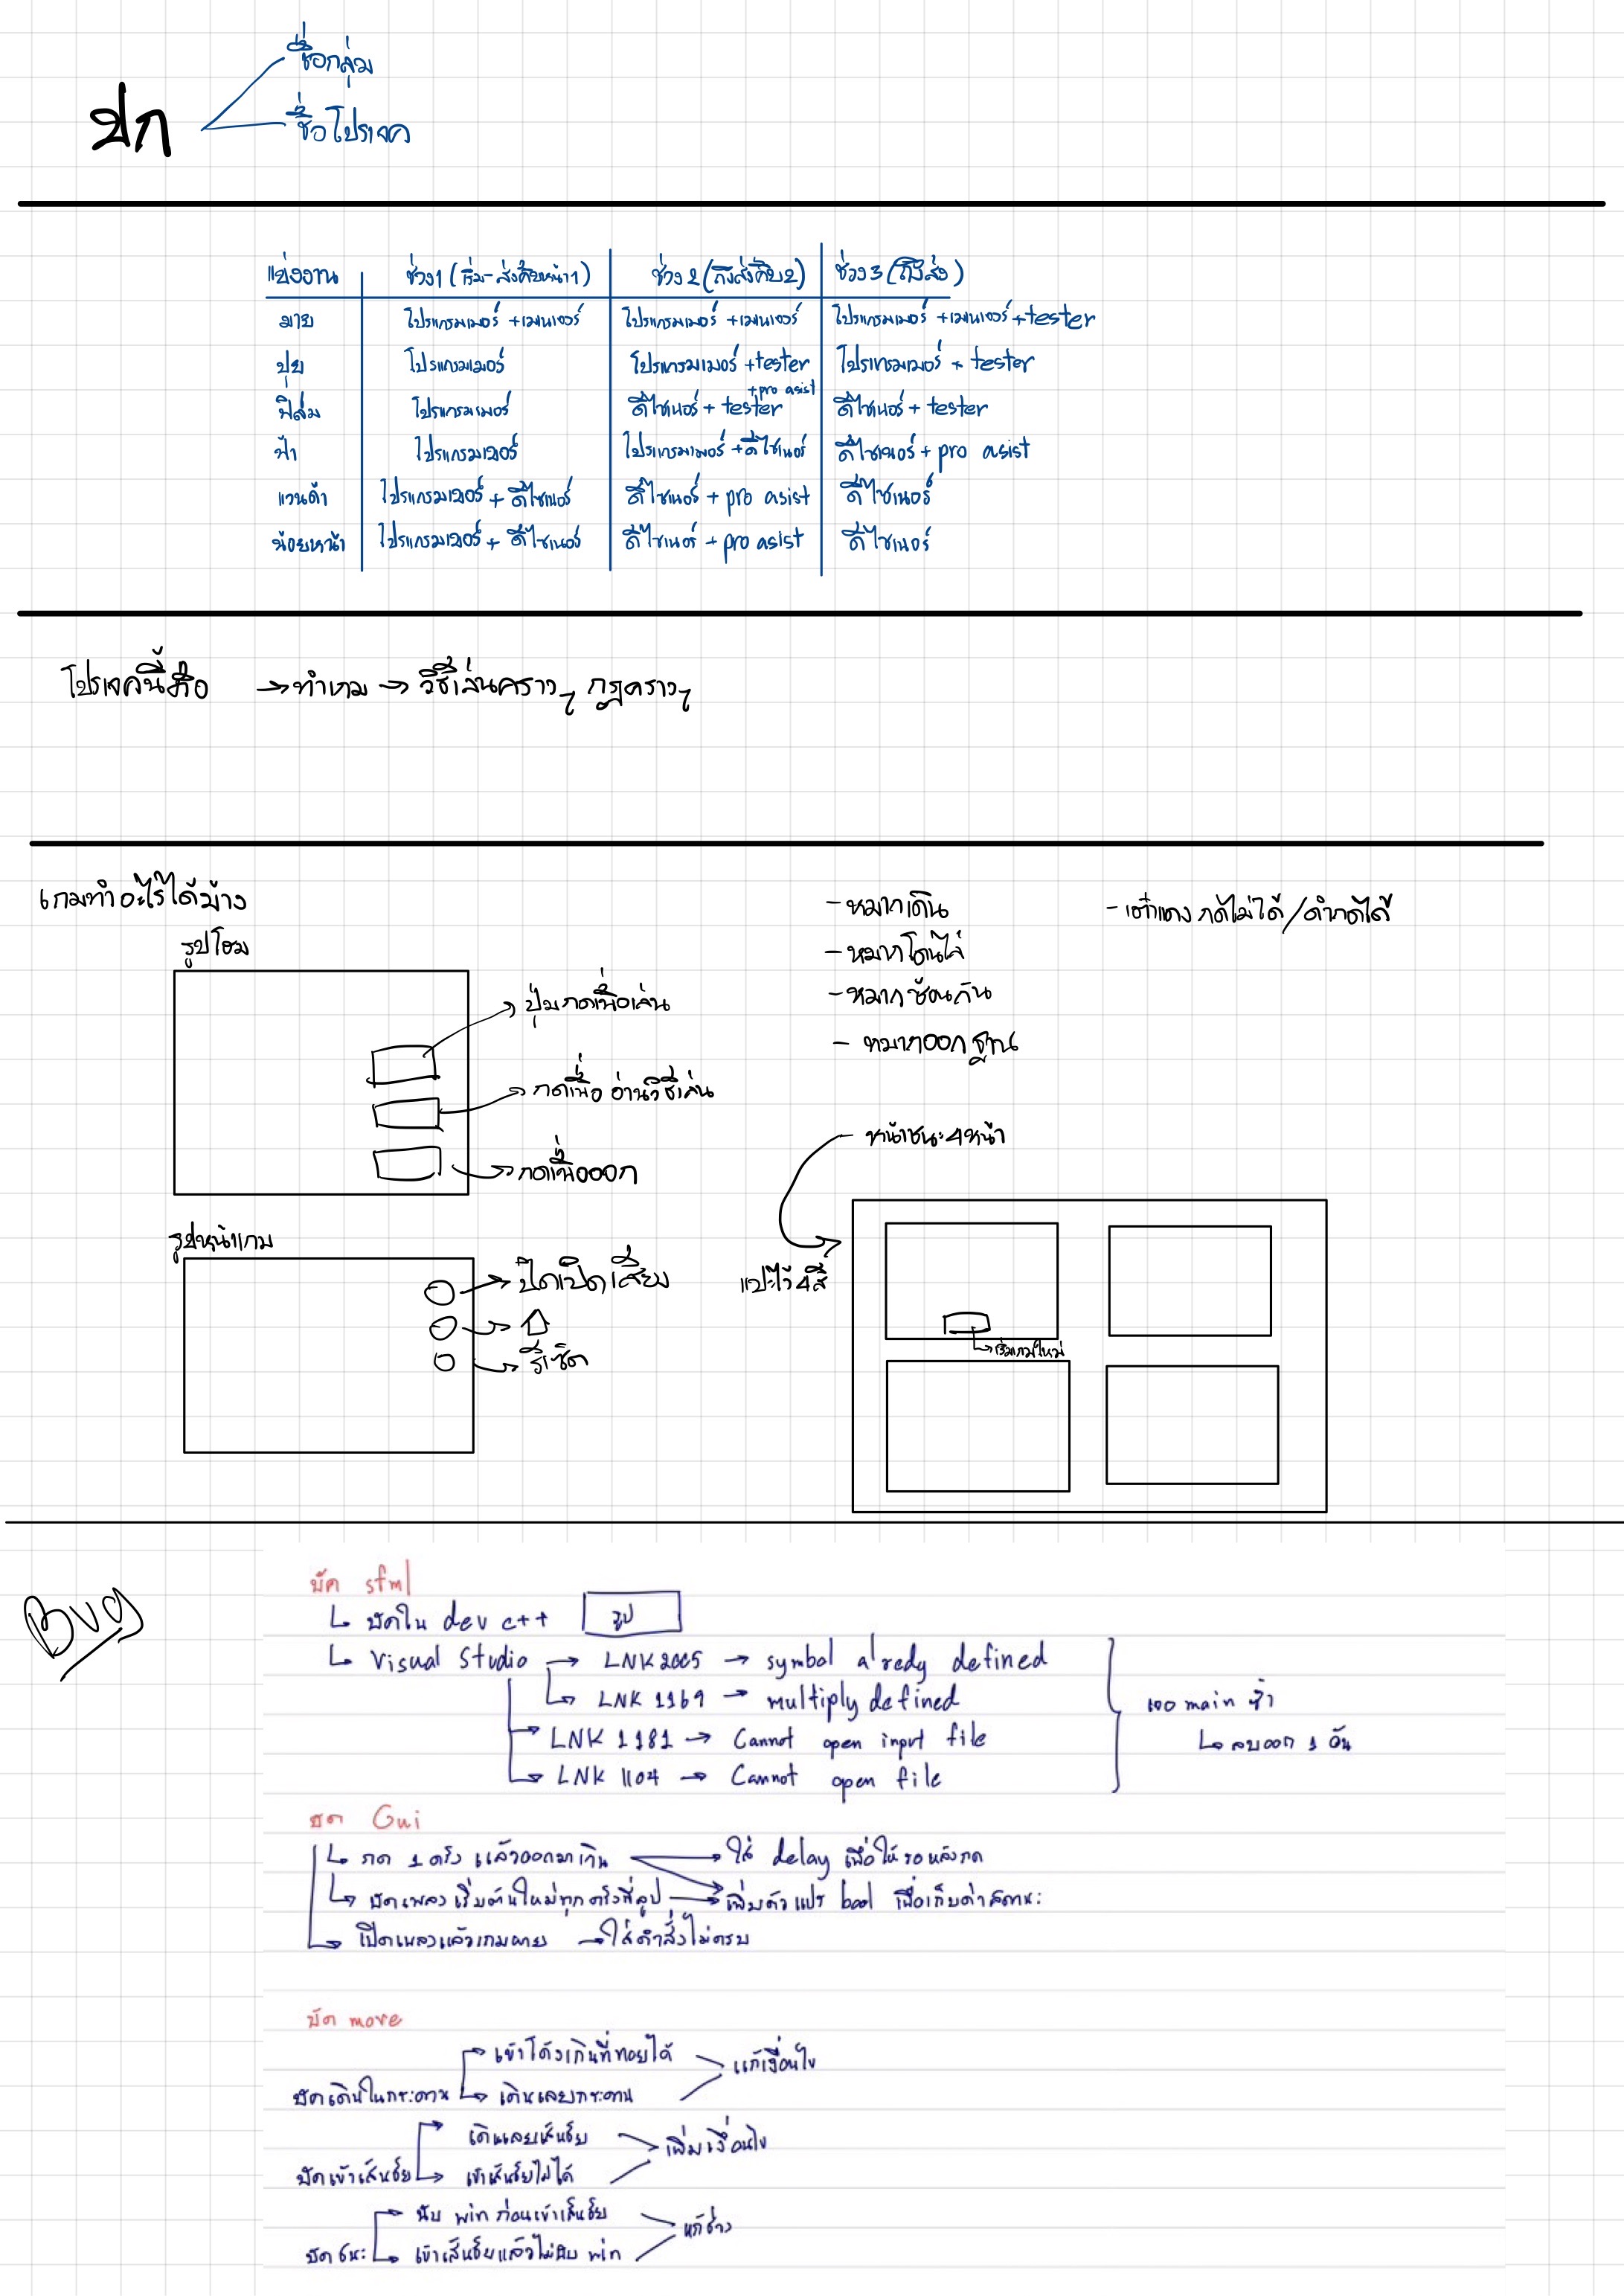 ชื่อกลุ่ม
ปก
ชื่อโปรเจค
แบ่งงาน ช่วง1 (เริ่ม-ส่งคืบหน้า1) ช่วง 2 (ถึงส่งคืบ2) ช่วง 3 (ถึงส่ง)
มาย โปรแกรมเมอร์ +เมนเจอร์ โปรแกรมเมอร์ +เมนเจอร์ โปรแกรมเมอร์ +เมนเจอร์ +tester
ปุย โปรแกรมเมอร์ โปรแกรมเมอร์ +tester โปรแกรมเมอร์ + tester
ฟิล์ม โปรแกรมเมอร์ ดีไซเนอร์ + tester +pro asist ดีไซเนอร์ + tester
ฟ้า โปรแกรมเมอร์ โปรแกรมเมอร์ +ดีไซเนอร์ ดีไซเนอร์ + pro asist
แวนด้า โปรแกรมเมอร์ + ดีไซเนอร์ ดีไซเนอร์ + pro asist ดีไซเนอร์
น้อยหน่า โปรแกรมเมอร์ + ดีไซเนอร์ ดีไซเนอร์ + pro asist ดีไซเนอร์
โปรเจคนี้คือ → ทำเกม → วิธีเล่นคราวๆ กฎคราวๆ
เกมทำอะไรได้บ้าง
รูปโฮม
ปุ่มกดเพื่อเล่น
กดเพื่อ อ่านวิธีเล่น
กดเพื่อออก
รูปหน้าเกม
ปิดเปิดเสียง
รีเซ็ต
- หมากเดิน
- หมากโดนไล่
- หมากซ้อนกัน
- หมากออกฐาน
- เต๋าแดง กดไม่ได้ / ดำกดได้
- หน้าชนะ 4 หน้า
แปะไว้ 4 สี
เริ่มเกมใหม่
Bug
บัค sfml
บัคใน dev c++ รูป
Visual Studio → LNK 2005 → symbol alredy defined
LNK 1169 → multiply defined
LNK 1181 → Cannot open input file
LNK 1104 → Cannot open file
เจอ main ซ้ำ
ลบออก 1 อัน
บัค Gui
กด 1 ครั้ง แล้วออกมาเกิน → ใส่ delay เพื่อให้รอหลังกด
บัคเพลงเริ่มต้นใหม่ทุกครั้งที่ลูป → เพิ่มตัวแปร bool เพื่อเก็บค่าสถานะ
เปิดเพลงแล้วเกมตาย → ใส่คำสั่งไม่ครบ
บัค move
เข้าโค้งเกินที่ทอยได้
แก้เงื่อนไข
บัคเดินในกระดาน
เดินเลยกระดาน
เดินเลยเส้นชัย
เพิ่มเงื่อนไข
บัคเข้าเส้นชัย
เข้าเส้นชัยไม่ได้
นับ win ก่อนเข้าเส้นชัย
บัคชนะ
เข้าเส้นชัยแล้วไม่นับ win